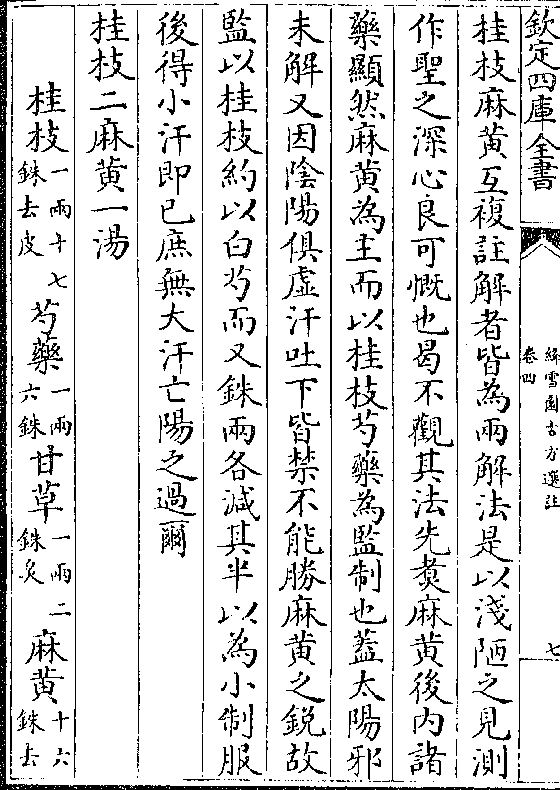 欽定四庫全書
絳雪園古方選註
卷四
七
桂枝麻黄互複註解者皆為兩解法是以淺陋之見測
作聖之深心良可慨也曷不觀其法先煑麻黄後内諸
藥顯然麻黄為主而以桂枝芍藥為監制也葢太陽邪
未解又因陰陽俱虛汗吐下皆禁不能勝麻黄之鋭故
監以桂枝約以白芍而又銖兩各減其半以為小制服
後得小汗即已庶無大汗亡陽之過爾
桂枝二麻黄一湯
桂枝一兩十七銖去皮 芍藥一兩六銖 甘草一兩二銖炙 麻黄十六銖去